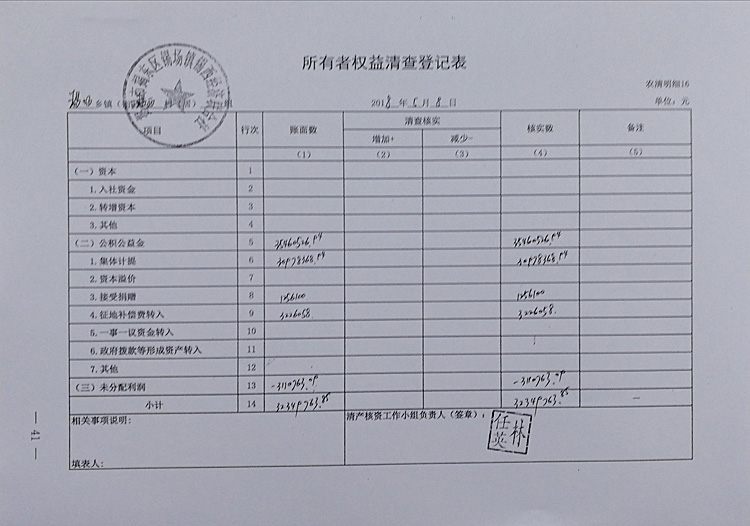 所有者权益清查登记表
东区锡场镇锡西经济联合社
农清明细16
乡镇
2018年 月8日
单位：元
项目 行次 账面数 清查核实 核实数 备注
增加+ 减少-
（1） （2） （3） （4） （5）
（一）资本 1
1.入社资金 2
2.转增资本 3
3.其他 4
（二）公积公益金 5 35460526.94 35460526.94
1.集体计提 6 30978368.94 30978368.94
2.资本溢价 7
3.接受捐赠 8 1256100 1256100
4.征地补偿费转入 9 3226058. 3226058.
5.一事一议资金转入 10
6.政府拨款等形成资产转入 11
7.其他 12
（三）未分配利润 13 -3110763.09 -3110763.09
小计 14 32349763.85 32349763.85 —
相关事项说明：
清产核资工作小组负责人（签章）：
林任英
填表人：
— 41 —